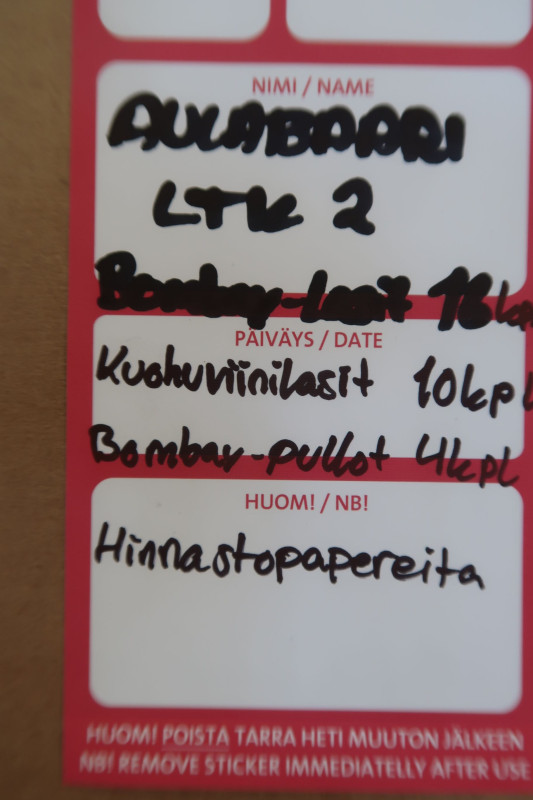 NIMI / NAME
AULABAARI
LTK 2
Bombay-lasit 16 kpl
PÄIVÄYS / DATE
Kuohuviinilasit 10 kpl
Bombay-pullot 4 kpl
HUOM! / NB!
Hinnastopapereita
HUOM! POISTA TARRA HETI MUUTON JÄLKEEN
NB! REMOVE STICKER IMMEDIATELLY AFTER USE